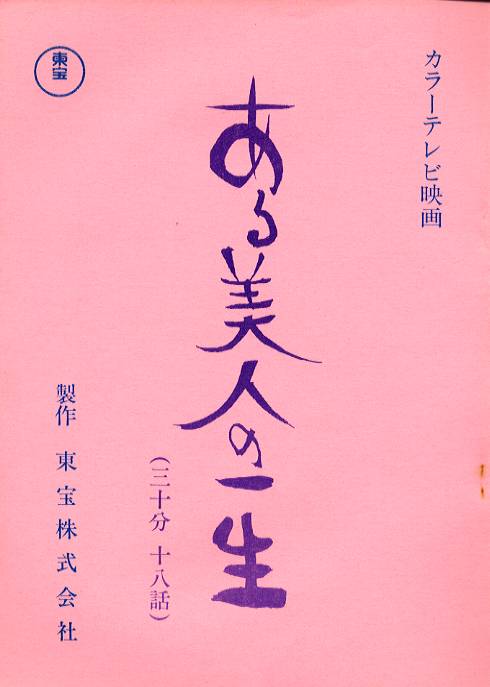 カラーテレビ映画
ある美人の一生
(三十分 十八話)
製作 東宝株式会社
東宝